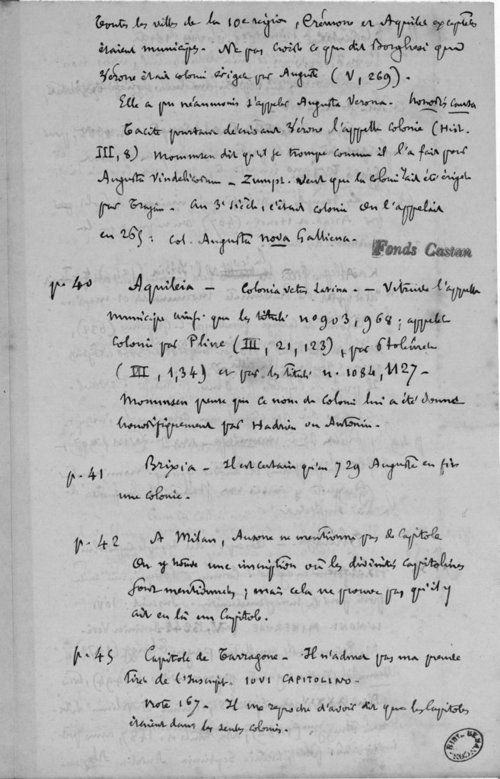 toutes les villes de la 10e région, Crémone et Aquilée exceptées
étaient municipes. Ne pas croire ce que dit Borghesi que
Vérone était colonie érigée par Auguste (V, 269).
Elle a pu néanmoins s'appeler Augusta Verona. honoris causa
Tacite pourtant décrivant Vérone l'appelle colonie (Hist.
III, 8) Mommsen dit qu'il se trompe comme il l'a fait pour
Augusta Vindelicorum - Zumpt. veut que la colonie ait été érigée
par Trajan. Au 3e siècle, c'était colonie on l'appelait
en 265: Col. Augusta nova Galliena.
Fonds Castan
p. 40 Aquileia - Colonia vetus Latina. - Vitruve l'appelle
municipe ainsi que les tituli nos 903, 968; appelée
Colonie par Pline (III, 21, 123), par Ptolémée
(III, 1, 34) et par les tituli n. 1084, 1127 -
Mommsen pense que ce nom de colonie lui a été donné
honorifiquement par Hadrien ou Antonin.
p. 41 Brixia - Il est certain qu'en 729 Auguste en fit
une colonie.
p. 42 A Milan, Ausone ne mentionne pas de Capitole
On y trouve une inscription où les divinités capitolines
sont mentionnées; mais cela ne prouve pas qu'il y
ait eu là un Capitole.
p. 45 Capitole de Tarragone - Il n'admet pas ma preuve
tirée de l'Inscript. IOVI CAPITOLINO.
Note 167. - Il me reproche d'avoir dit que les Capitoles
étaient dans les seules colonies.